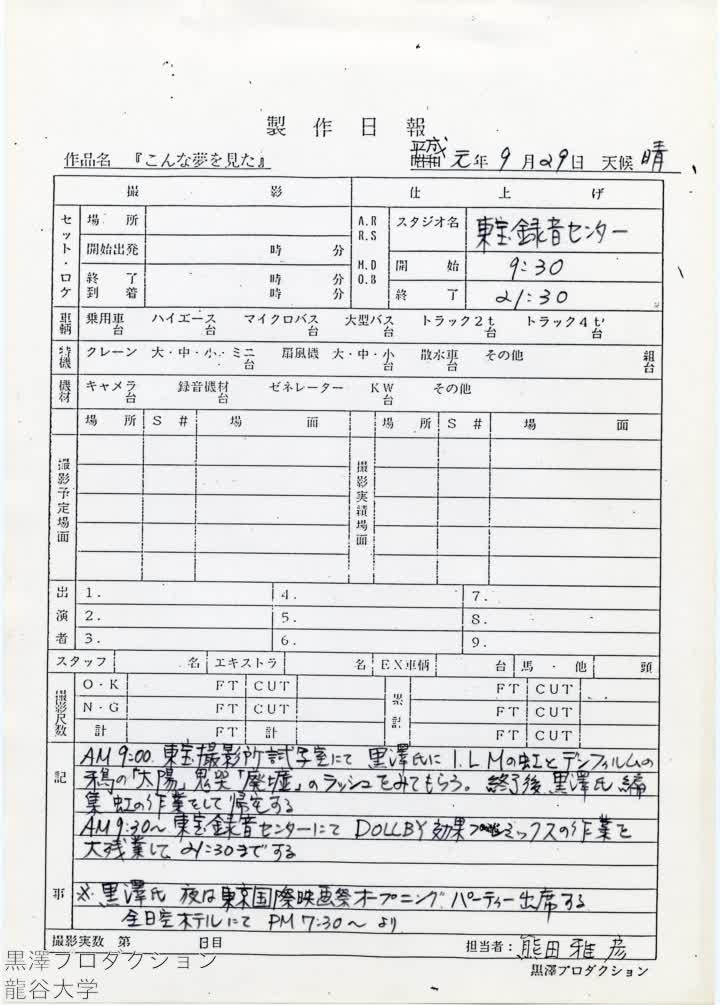 製作日報
作品名 『こんな夢を見た』 昭和 平成 元年 9月29日 天候 晴
撮影 仕上げ
セット・ロケ 場所 A.R R.S M.D O.B スタジオ名 東宝録音センター
開始出発 時 分 開始 9:30
終了到着 時 分 終了 21:30
車輌 乗用車 台 ハイエース 台 マイクロバス 台 大型バス 台 トラック2t 台 トラック4t 台
特機 クレーン 大・中・小・ミニ 台 扇風機 大・中・小 台 散水車 台 その他 組 台
機材 キャメラ 台 録音機材 台 ゼネレーター KW 台 その他
場所 S# 場面 場所 S# 場面
撮影予定場面 撮影実績場面
出演者 1. 4. 7.
2. 5. 8.
3. 6. 9.
スタッフ 名 エキストラ 名 EX車輌 台 馬・他 頭
撮影尺数 O・K FT CUT 累計 FT CUT
N・G FT CUT FT CUT
計 FT 計 FT CUT
記事
AM 9:00. 東宝撮影所試写室にて 黒澤氏に I.L.Mの虹とデンフィルムの
鴉の「太陽」鬼哭「廃墟」のラッシュをみてもらう。終了後 黒澤氏 編
集 虹の作業をして帰宅する
AM 9:30〜 東宝録音センターにて DOLLBY効果 ミックスの作業を
大残業して 21:30までする
※黒澤氏 夜は東京国際映画祭オープニングパーティー出席する
全日空ホテルにて PM 7:30〜 より
撮影実数 第 日目 担当者: 熊田雅彦
黒澤プロダクション
黒澤プロダクション
龍谷大学